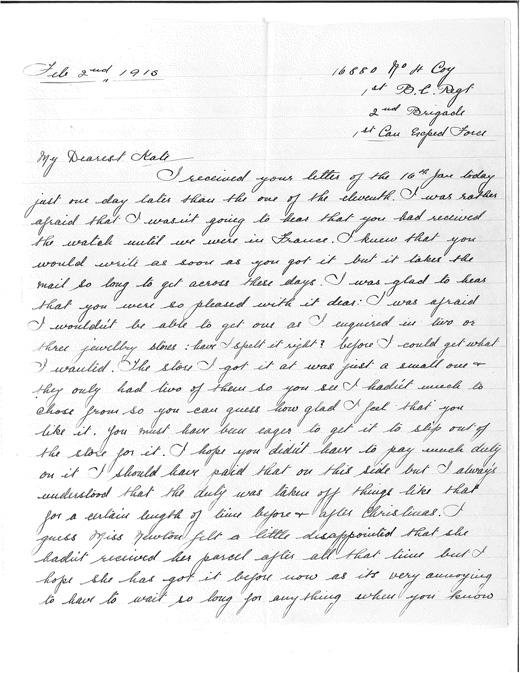 Feb 2nd, 1915
16880 No 4 Coy
1st B.C. Regt
2nd Brigade
1st Can Exped Force
My Dearest Kate
I received your letter of the 16th Jan today
just one day later than the one of the eleventh. I was rather
afraid that I wasn't going to hear that you had received
the watch until we were in France. I knew that you
would write as soon as you got it but it takes the
mail so long to get across these days. I was glad to hear
that you were so pleased with it dear: I was afraid
I wouldn't be able to get one as I enquired in two or
three jewellry stores: have I spelt it right? before I could get what
I wanted. The store I got it at was just a small one +
they only had two of them so you see I hadn't much to
chose from so you can guess how glad I feel that you
like it. You must have been eager to get it to slip out of
the store for it. I hope you didn't have to pay much duty
on it I should have paid that on this side but I always
understood that the duty was taken off things like that
for a certain length of time before + after Christmas. I
guess Miss Newton felt a little disappointed that she
hadn't received her parcel after all that time but I
hope she has got it before now as its very annoying
to have to wait so long for anything when you know